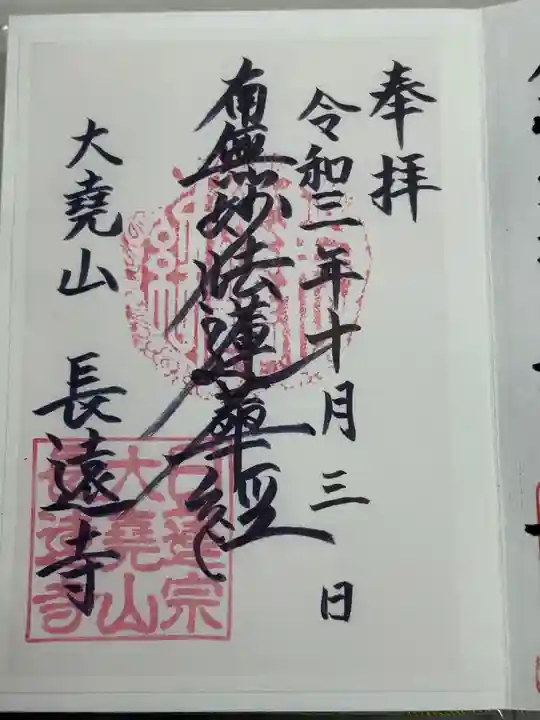 奉拝
令和三年十月三日
南無妙法蓮華経
大堯山 長遠寺
日蓮宗
大堯山
長遠寺